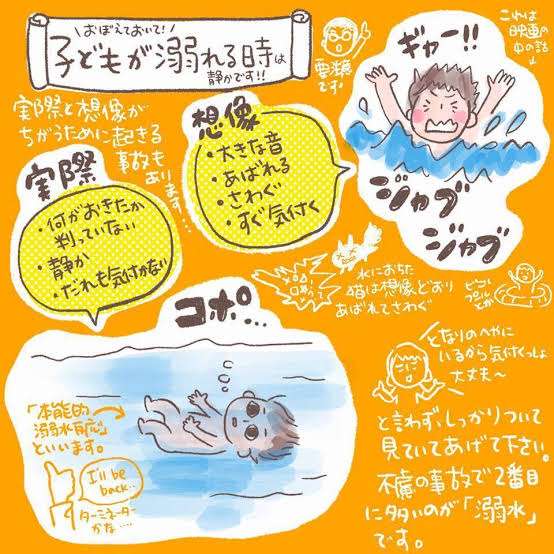 おぼえておいて!
子どもが溺れる時は
静かです!!
要注意
です
これは
映画の
中の話
ギャー!!
実際と想像が
ちがうために起きる
事故も
あります…
想像
・大きな音
・あばれる
・さわぐ
・すぐ気付く
ジャブ
ジャブ
実際
・何がおきたか
判っていない
・静か
・だれも気付かない
水におちた
猫は想像どおり
あばれてさわぐ
ビニール
プール
とか
コポ…
「本能的
溺水反応」
といいます。
I'll be
back…
ターミネーター
かな…
となりのへやに
いるから気付くっしょ
大丈夫〜
と言わず、しっかりついて
見ていてあげて下さい。
不慮の事故で2番目
に多いのが「溺水」
です。